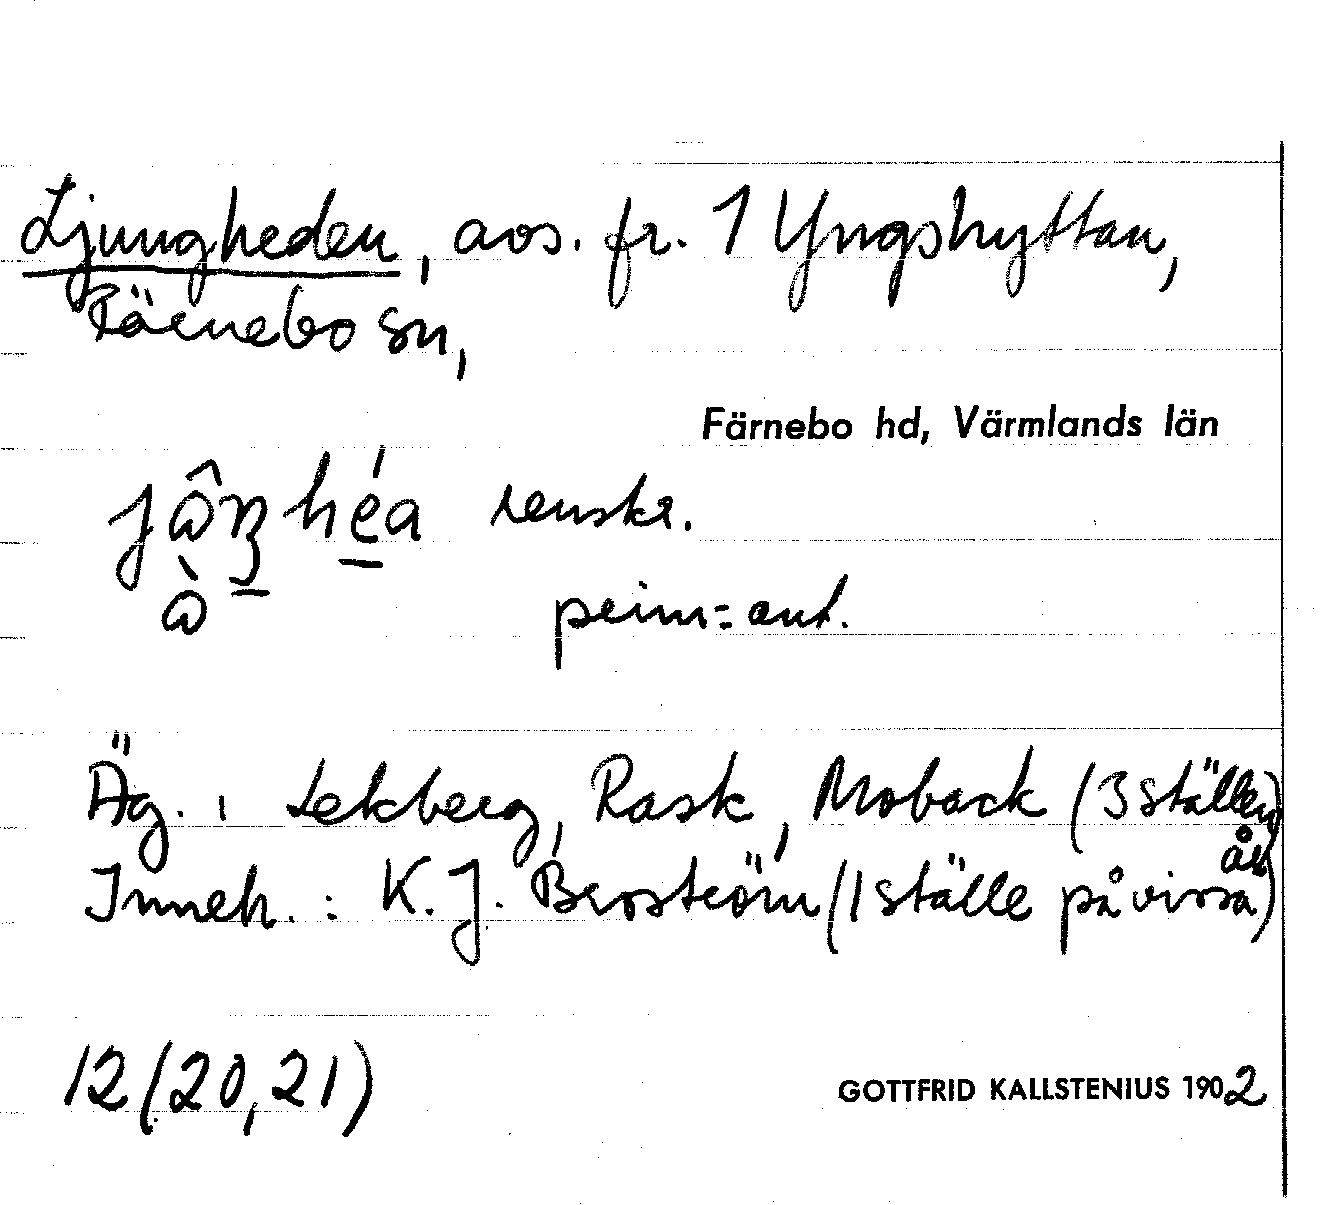 Ljungheden, avs. fr. 1 Yngshyttan,
Färnebo sn,
Färnebo hd, Värmlands län
renskr.
prim.-ant.
Äg. : Lekberg, Rask, Moback (3 ställen)
Inneh. : K. J. Broström (1 ställe på vissa år)
12 (20, 21)
GOTTFRID KALLSTENIUS 1902